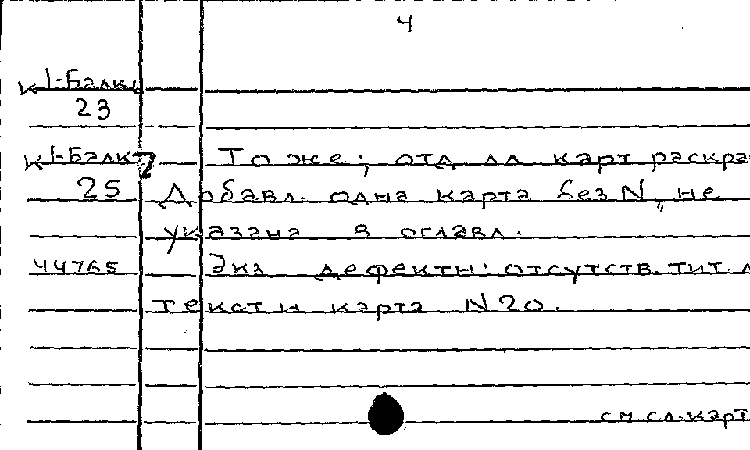 4
К1-Балк
23
К1-Балк 7 То же; отд. лл. карт раскра
25 Добавл. одна карта без N, не
указана в оглавл.
44765 Экз. дефектн: отсутств. тит. л
текст и карта N 20.
см сл. карт